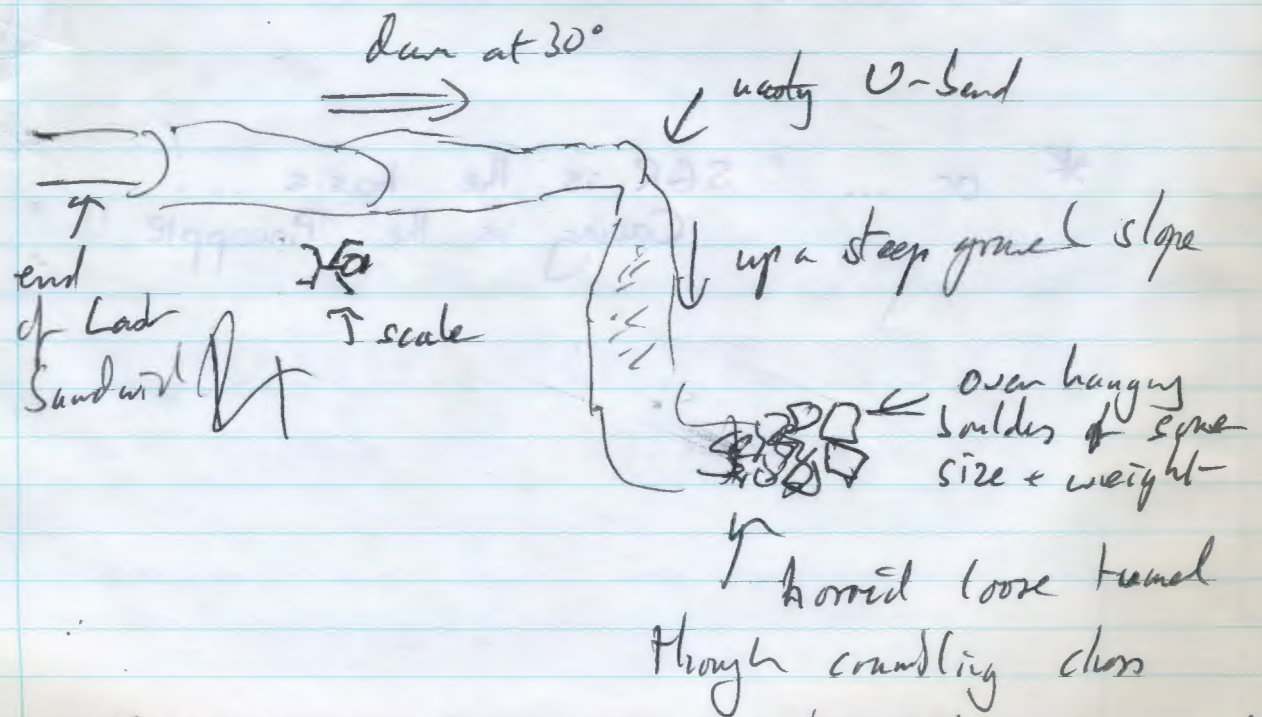 Down at 30°
nasty U-bend
end
of Last
Sandwich
scale
up a steep gravel slope
overhanging
boulders of some
size + weight
horrid loose tunnel
through crumbling choss